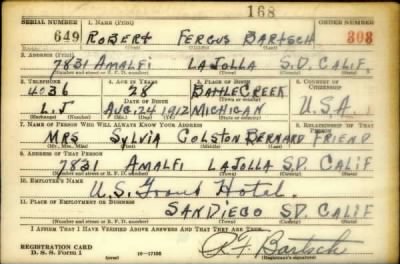 168
SERIAL NUMBER 1. NAME (Print) ORDER NUMBER
649 ROBERT FERGUS BARTSCH 308
2. ADDRESS (Print)
7831 AMALFI LAJOLLA S.D. CALIF.
(Number and street or R. F. D. number) (Town) (County) (State)
3. TELEPHONE 4. AGE IN YEARS 5. PLACE OF BIRTH 6. COUNTRY OF CITIZENSHIP
4036 28 BATTLE CREEK
DATE OF BIRTH (Town or county)
L.J AUG. 24 1912 MICHIGAN U.S.A.
(Exchange) (Number) (Mo.) (Day) (Yr.) (State or country)
7. NAME OF PERSON WHO WILL ALWAYS KNOW YOUR ADDRESS 8. RELATIONSHIP OF THAT PERSON
MRS SYLVIA COLSTON BERNARD FRIEND
(Mr., Mrs., Miss) (First) (Middle) (Last)
9. ADDRESS OF THAT PERSON
7831 AMALFI LAJOLLA S.D. CALIF
(Number and street or R. F. D. number) (Town) (County) (State)
10. EMPLOYER'S NAME
U.S. Grant Hotel
11. PLACE OF EMPLOYMENT OR BUSINESS
SAN DIEGO SD. CALIF
(Number and street or R. F. D. number) (Town) (County) (State)
I AFFIRM THAT I HAVE VERIFIED ABOVE ANSWERS AND THAT THEY ARE TRUE.
REGISTRATION CARD
D. S. S. Form 1 16-17105 R F Bartsch
(Registrant's signature)